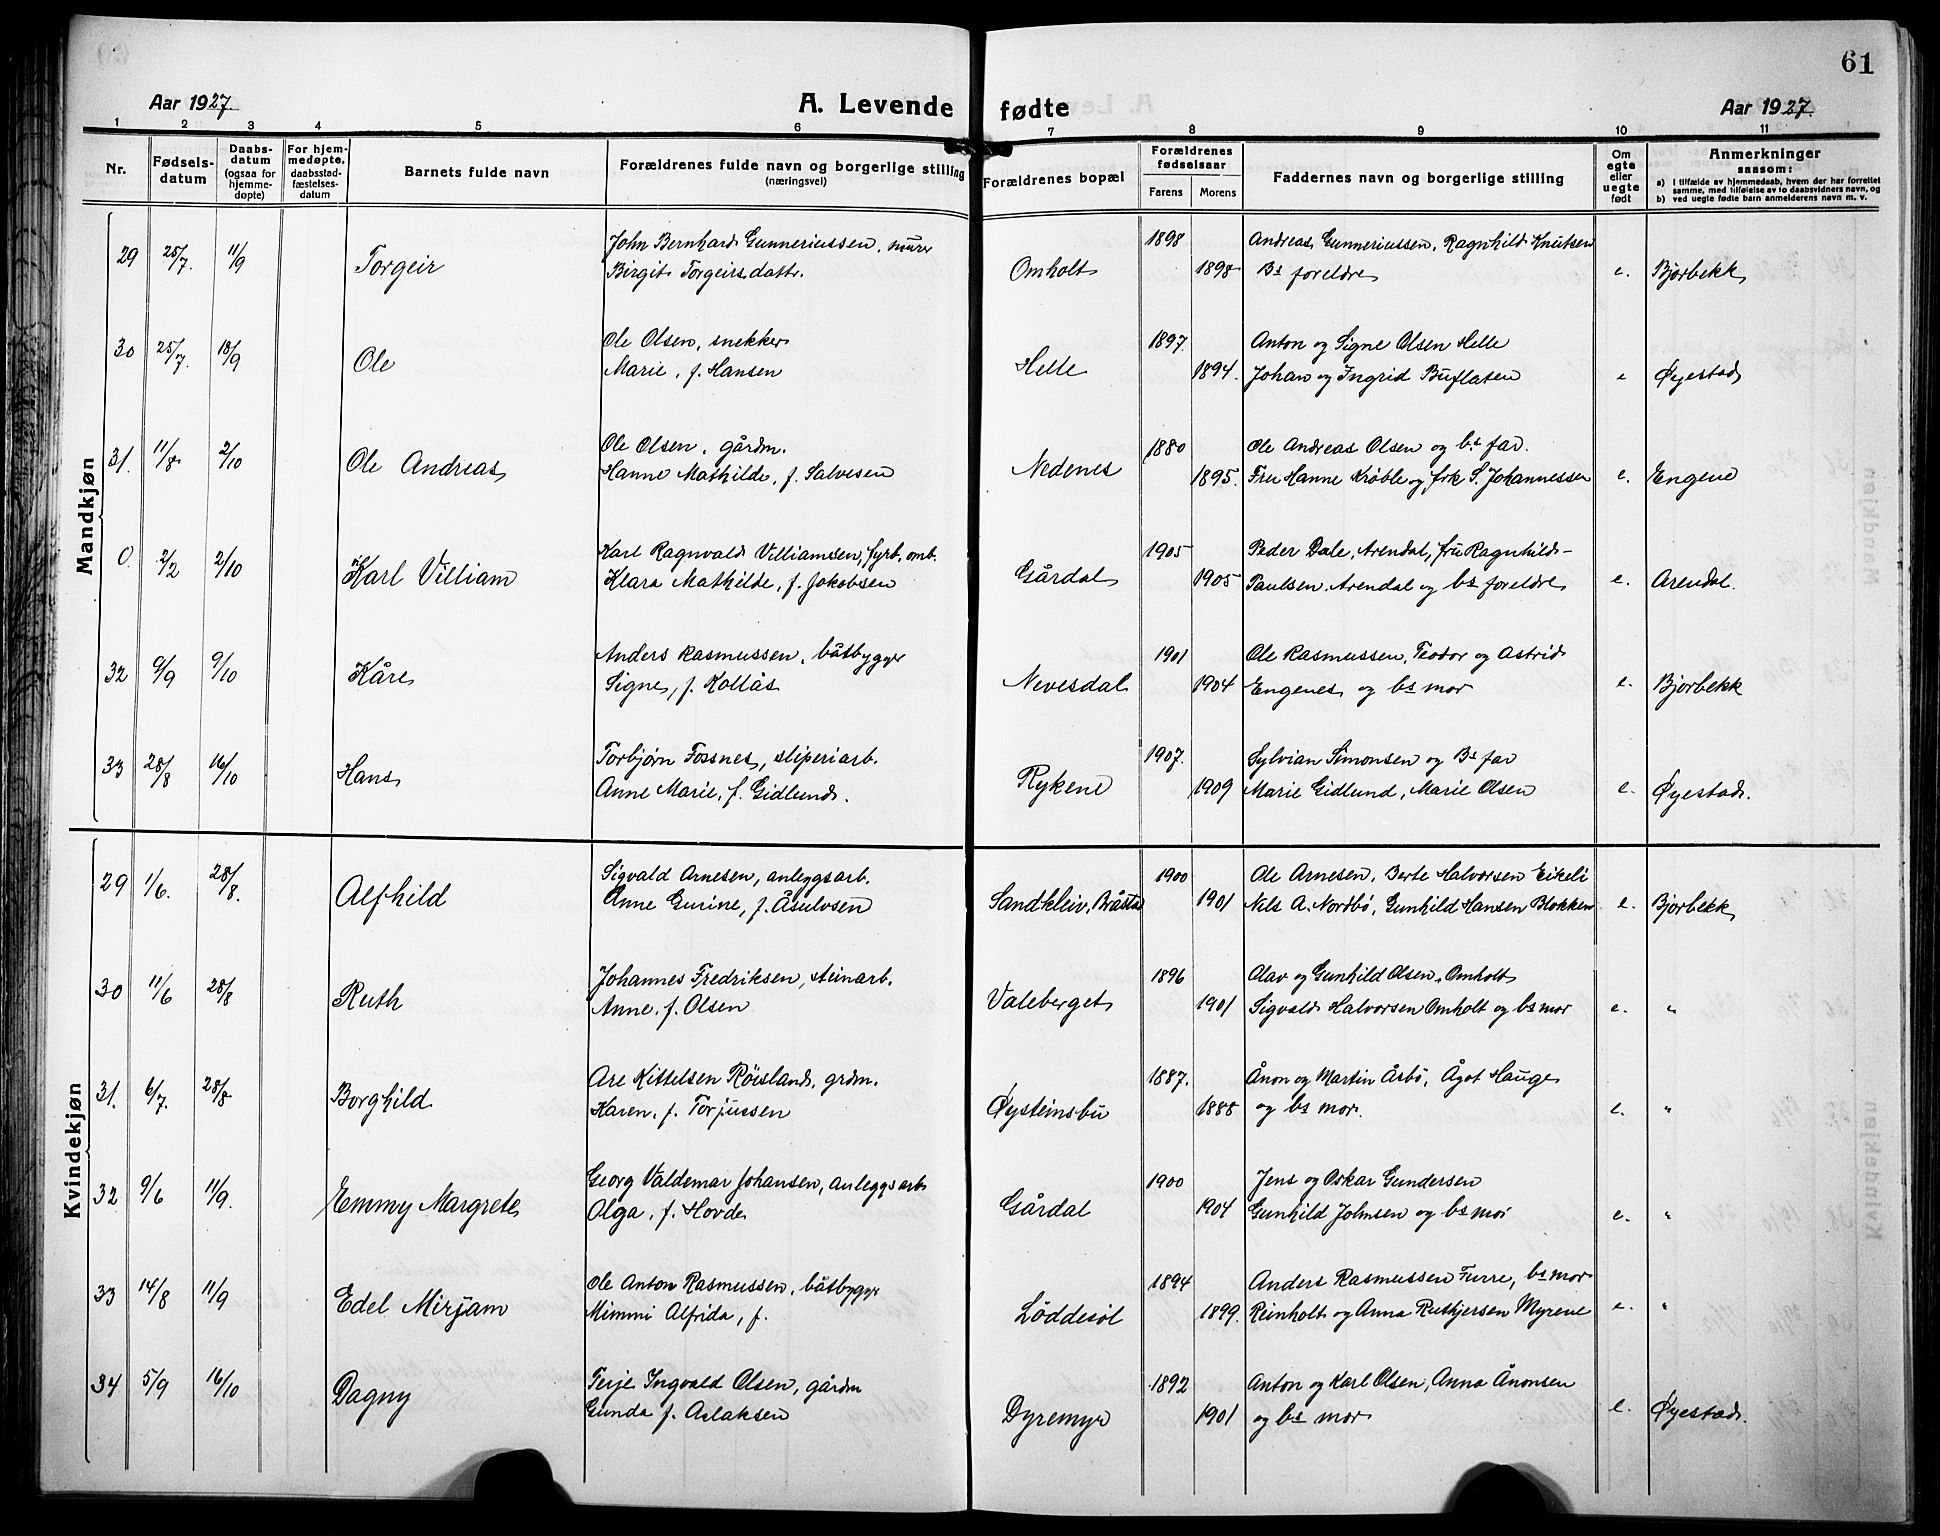 61
Aar 1927.
A. Levende fødte
Aar 1927.
1 2 3 4 5 6 7 8 9 10 11
Nr.
Fødsels-
datum
Daabs-
datum
(ogsaa for
hjemme-
døpte)
For hjem-
medøpte,
daabsstad-
fæstelses-
datum
Barnets fulde navn
Forældrenes fulde navn og borgerlige stilling
(næringsvei)
Forældrenes bopæl
Forældrenes
fødselsaar
Farens
Morens
Faddernes navn og borgerlige stilling
Om
egte
eller
uegte
født
Anmerkninger
saasom:
a) I tilfælde av hjemmedaab, hvem der har forrettet
samme, med tilføielse av to daabsvidners navn, og
b) ved uegte fødte barn anmelderens navn m. v.
Mandkjøn
John Bernhard Gunneriussen, murer 1898 Andreas Gunneriussen, Ragnhild Knutsen
29 25/7. 11/9 Torgeir Birgit Torgeirsdattr. Omholt 1898 Bs foreldre e. Bjorbekk
Ole Olsen, snekker 1897. Anton og Signe Olsen Helle
30 25/7. 18/9 Ole Marie, f. Hansen Helle 1894. Johan og Ingrid Buflaten e Øyestad
Ole Olsen, gårdm. 1880 Ole Andreas Olsen og bs far.
31. 11/8. 2/10 Ole Andreas Hanne Mathilde, f. Salvesen Nedenes 1895. Fru Hanne Krøble og frk S. Johannessen e. Engene
Karl Ragnvald Villiamsen, fyrb. omb. 1905 Peder Dale, Arendal, fru Ragnhild-
0. 2/2 2/10 Karl Villiam Klara Mathilde, f. Jakobsen Gårdal 1905 Paulsen. Arendal og bs foreldre e. Arendal.
Anders Rasmussen, båtbygger 1901 Ole Rasmussen, Teodor og Astrid
32 9/9 9/10 Kåre Signe, f. Kollås Nevesdal 1904 Engenes og bs mor e. Bjorbekk
Torbjørn Fossnes, sliperiarb. 1907. Sylvian Simonsen og Bs far
33 28/8 16/10 Hans Anne Marie, f. Gidlund. Rykene 1909 Marie Gidlund, Marie Olsen e. Øyestad.
Kvindekjøn
Sigvald Arnesen, anleggsarb. 1900 Ole Arnesen, Berte Halvorsen Eikeli
29 1/6. 28/8. Alfhild Anne Gurine, f. Åsulvsen Sandkleiv, Bråstad 1901 Nils A. Nordbø, Gunhild Hansen Blokken e. Bjorbekk
Johannes Fredriksen, steinarb. 1896 Olav og Gunhild Olsen, Omholt
30 11/6 28/8 Ruth Anne. f. Olsen Valeberget 1901 Sigvald Halvorsen Omholt og bs mor e. "
Are Kittelsen Røisland, grdm. 1887. Ånon og Martin Åsbø, Ågot Hauge
31. 6/7. 28/8 Borghild Karen, f. Torjussen Øysteinsbu 1888 og bs mor. e. "
Georg Valdemar Johansen, anleggsarb 1900 Jens og Oskar Gundersen
32 9/6 11/9. Emmy Margrete Olga, f. Hovde Gårdal 1904 Gunhild Johnsen og bs mor e. "
Ole Anton Rasmussen, båtbygger 1894 Anders Rasmussen Furre, bs mor
33 14/8 11/9 Edel Mirjam Mimmi Alfrida, f. Løddesøl 1899. Reinholt og Anna Rutkjersen Myrene e. "
Terje Ingvald Olsen, gårdm 1892 Anton og Karl Olsen, Anna Ånonsen
34 5/9 16/10 Dagny Gunda f. Aslaksen Dyremyr 1901 og bs mor e. Øyestad.